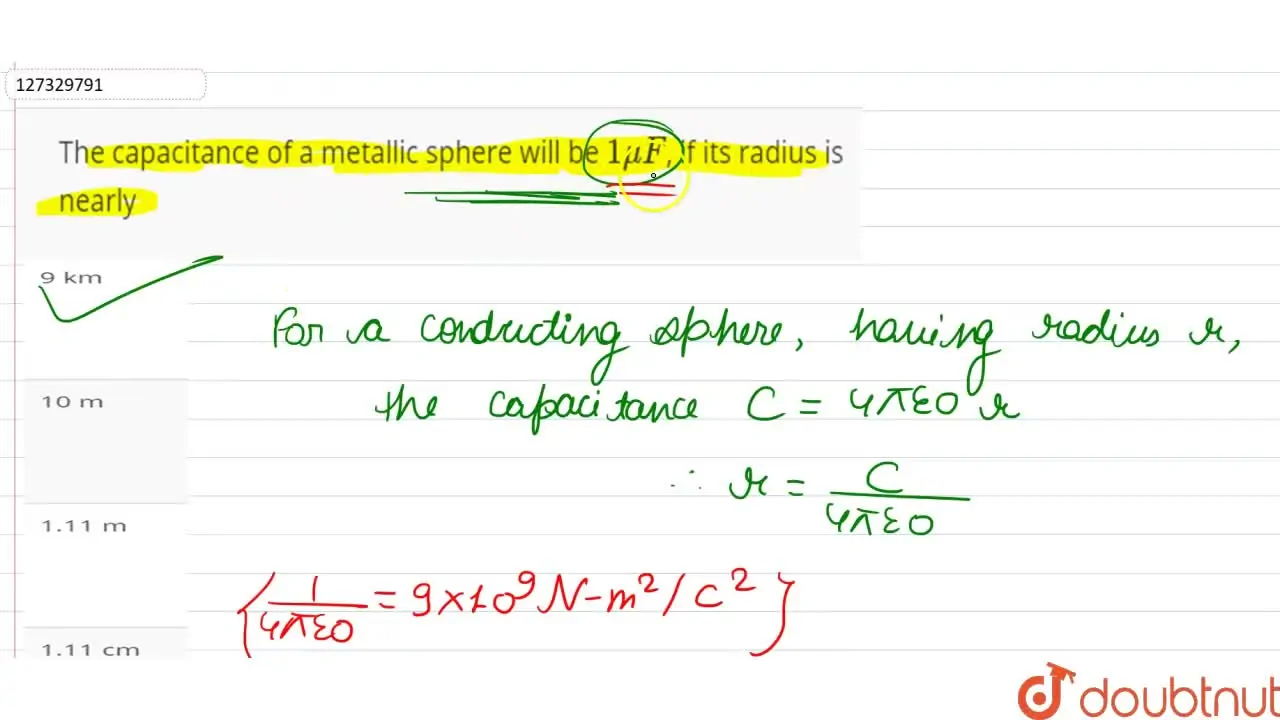 127329791
The capacitance of a metallic sphere will be 1μF, if its radius is
nearly
9 km
For a conducting sphere, having radius r,
10 m
the capacitance C = 4πε0 r
∴ r = C / 4πε0
1.11 m
{ 1 / 4πε0 = 9×10⁹ N-m² / C² }
1.11 cm
doubtnut